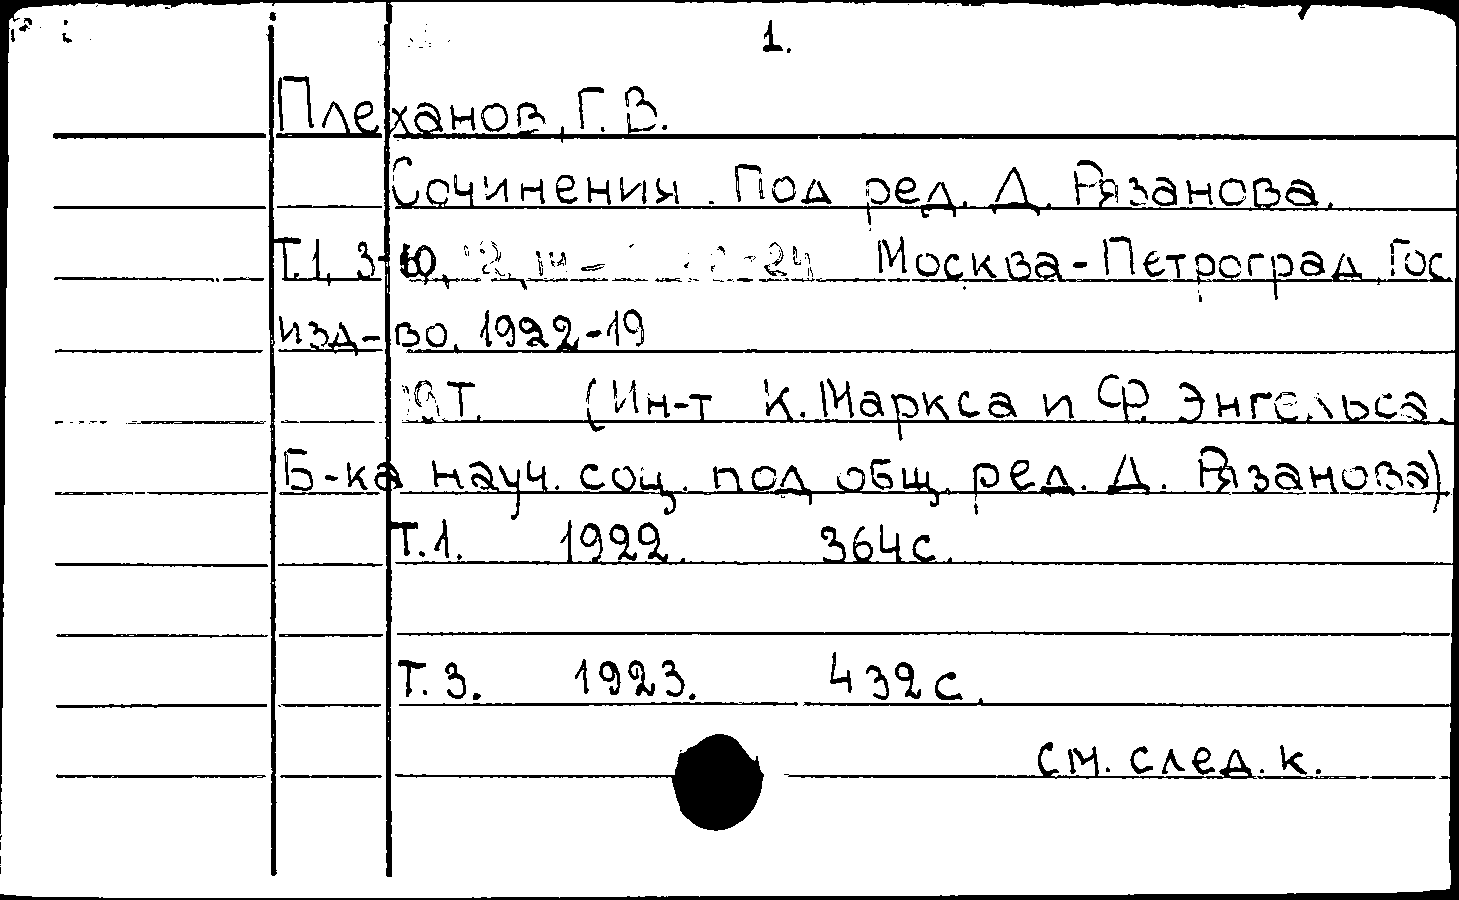 1.
Плеханов, Г. В.
Сочинения. Под ред. Д. Рязанова.
Т.1, 3-10, 24 Москва-Петроград, Гос
изд-во, 1922-19
Т. (Ин-т К. Маркса и Ф. Энгельса.
Б-ка науч. соц. под общ. ред. Д. Рязанова)
Т. 1. 1922. 364 с.
Т. 3. 1923. 432 с.
см. след. к.